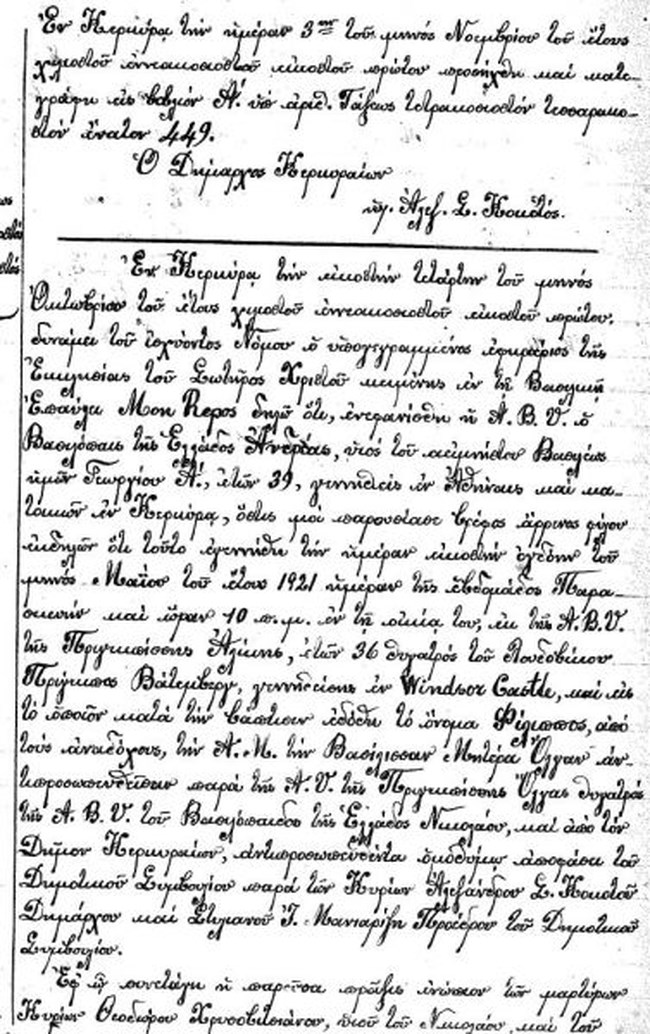 Ἐν Κερκύρᾳ τὴν ἡμέραν 3ην τοῦ μηνὸς Νοεμβρίου τοῦ ἔτους
χιλιοστοῦ ἐννεακοσιοστοῦ εἰκοστοῦ πρώτου προσήχθη καὶ κατε-
γράφη εἰς βιβλίον Α΄. ὑπ' ἀριθ. Τάξεως τετρακοσιοστὸν τεσσαρακο-
στὸν ἔνατον 449.
Ὁ Δήμαρχος Κερκυραίων
ὑπ. Ἀλεξ. Σ. Κοκοτός.
Ἐν Κερκύρᾳ τὴν εἰκοστὴν τετάρτην τοῦ μηνὸς
Ὀκτωβρίου τοῦ ἔτους χιλιοστοῦ ἐννεακοσιοστοῦ εἰκοστοῦ πρώτου.
δυνάμει τοῦ ἰσχύοντος Νόμου ὁ ὑπογεγραμμένος ἐφημέριος τῆς
Ἐκκλησίας τοῦ Σωτῆρος Χριστοῦ κειμένης ἐν τῇ Βασιλικῇ
Ἐπαύλει Mon Repos δηλῶ ὅτι, ἐνεφανίσθη ἡ Α. Β. Υ. ὁ
Βασιλόπαις τῆς Ἑλλάδος Ἀνδρέας, υἱὸς τοῦ ἀειμνήστου Βασιλέως
ἡμῶν Γεωργίου Α΄., ἐτῶν 39, γεννηθεὶς ἐν Ἀθήναις καὶ κα-
τοικῶν ἐν Κερκύρᾳ, ὅστις μοὶ παρουσίασε βρέφος ἄρρενος φύλου
ἐκδηλῶν ὅτι τοῦτο ἐγεννήθη τὴν ἡμέραν εἰκοστὴν ὀγδόην τοῦ
μηνὸς Μαΐου τοῦ ἔτους 1921 ἡμέραν τῆς ἑβδομάδος Παρα-
σκευὴν καὶ ὥραν 10 π.μ. ἐν τῇ οἰκίᾳ του, ἐκ τῆς Α.Β.Υ.
τῆς Πριγκιπίσσης Ἀλίκης, ἐτῶν 36 θυγατρὸς τοῦ Λουδοβίκου
Πρίγκιπος Βάτεμβεργ, γεννηθείσης ἐν Windsor Castle, καὶ εἰς
τὸ ὁποῖον κατὰ τὴν βάπτισιν ἐδόθη τὸ ὄνομα Φίλιππος, ἀπὸ
τοὺς ἀναδόχους, τὴν Α. Μ. τὴν Βασίλισσαν Μητέρα Ὄλγαν ἀν-
τιπροσωπευθεῖσαν παρὰ τῆς Α. Υ. τῆς Πριγκιπίσσης Ὄλγας θυγατρὸς
τῆς Α. Β. Υ. τοῦ Βασιλόπαιδος τῆς Ἑλλάδος Νικολάου, καὶ ἀπὸ τὸν
Δῆμον Κερκυραίων, ἀντιπροσωπευθέντα ὁμοθύμῳ ἀποφάσει τοῦ
Δημοτικοῦ Συμβουλίου παρὰ τῶν Κυρίων Ἀλεξάνδρου Σ. Κοκοτοῦ
Δημάρχου καὶ Στυλιανοῦ Ἰ. Μανιαρίζη Προέδρου τοῦ Δημοτικοῦ
Συμβουλίου.
Ἐφ' ᾧ συνετάγη ἡ παροῦσα πρᾶξις ἐνώπιον τῶν μαρτύρων
Κυρίων Θεοδώρου Χρυσοβιτσιάνου, υἱοῦ τοῦ Νικολάου, καὶ τοῦ